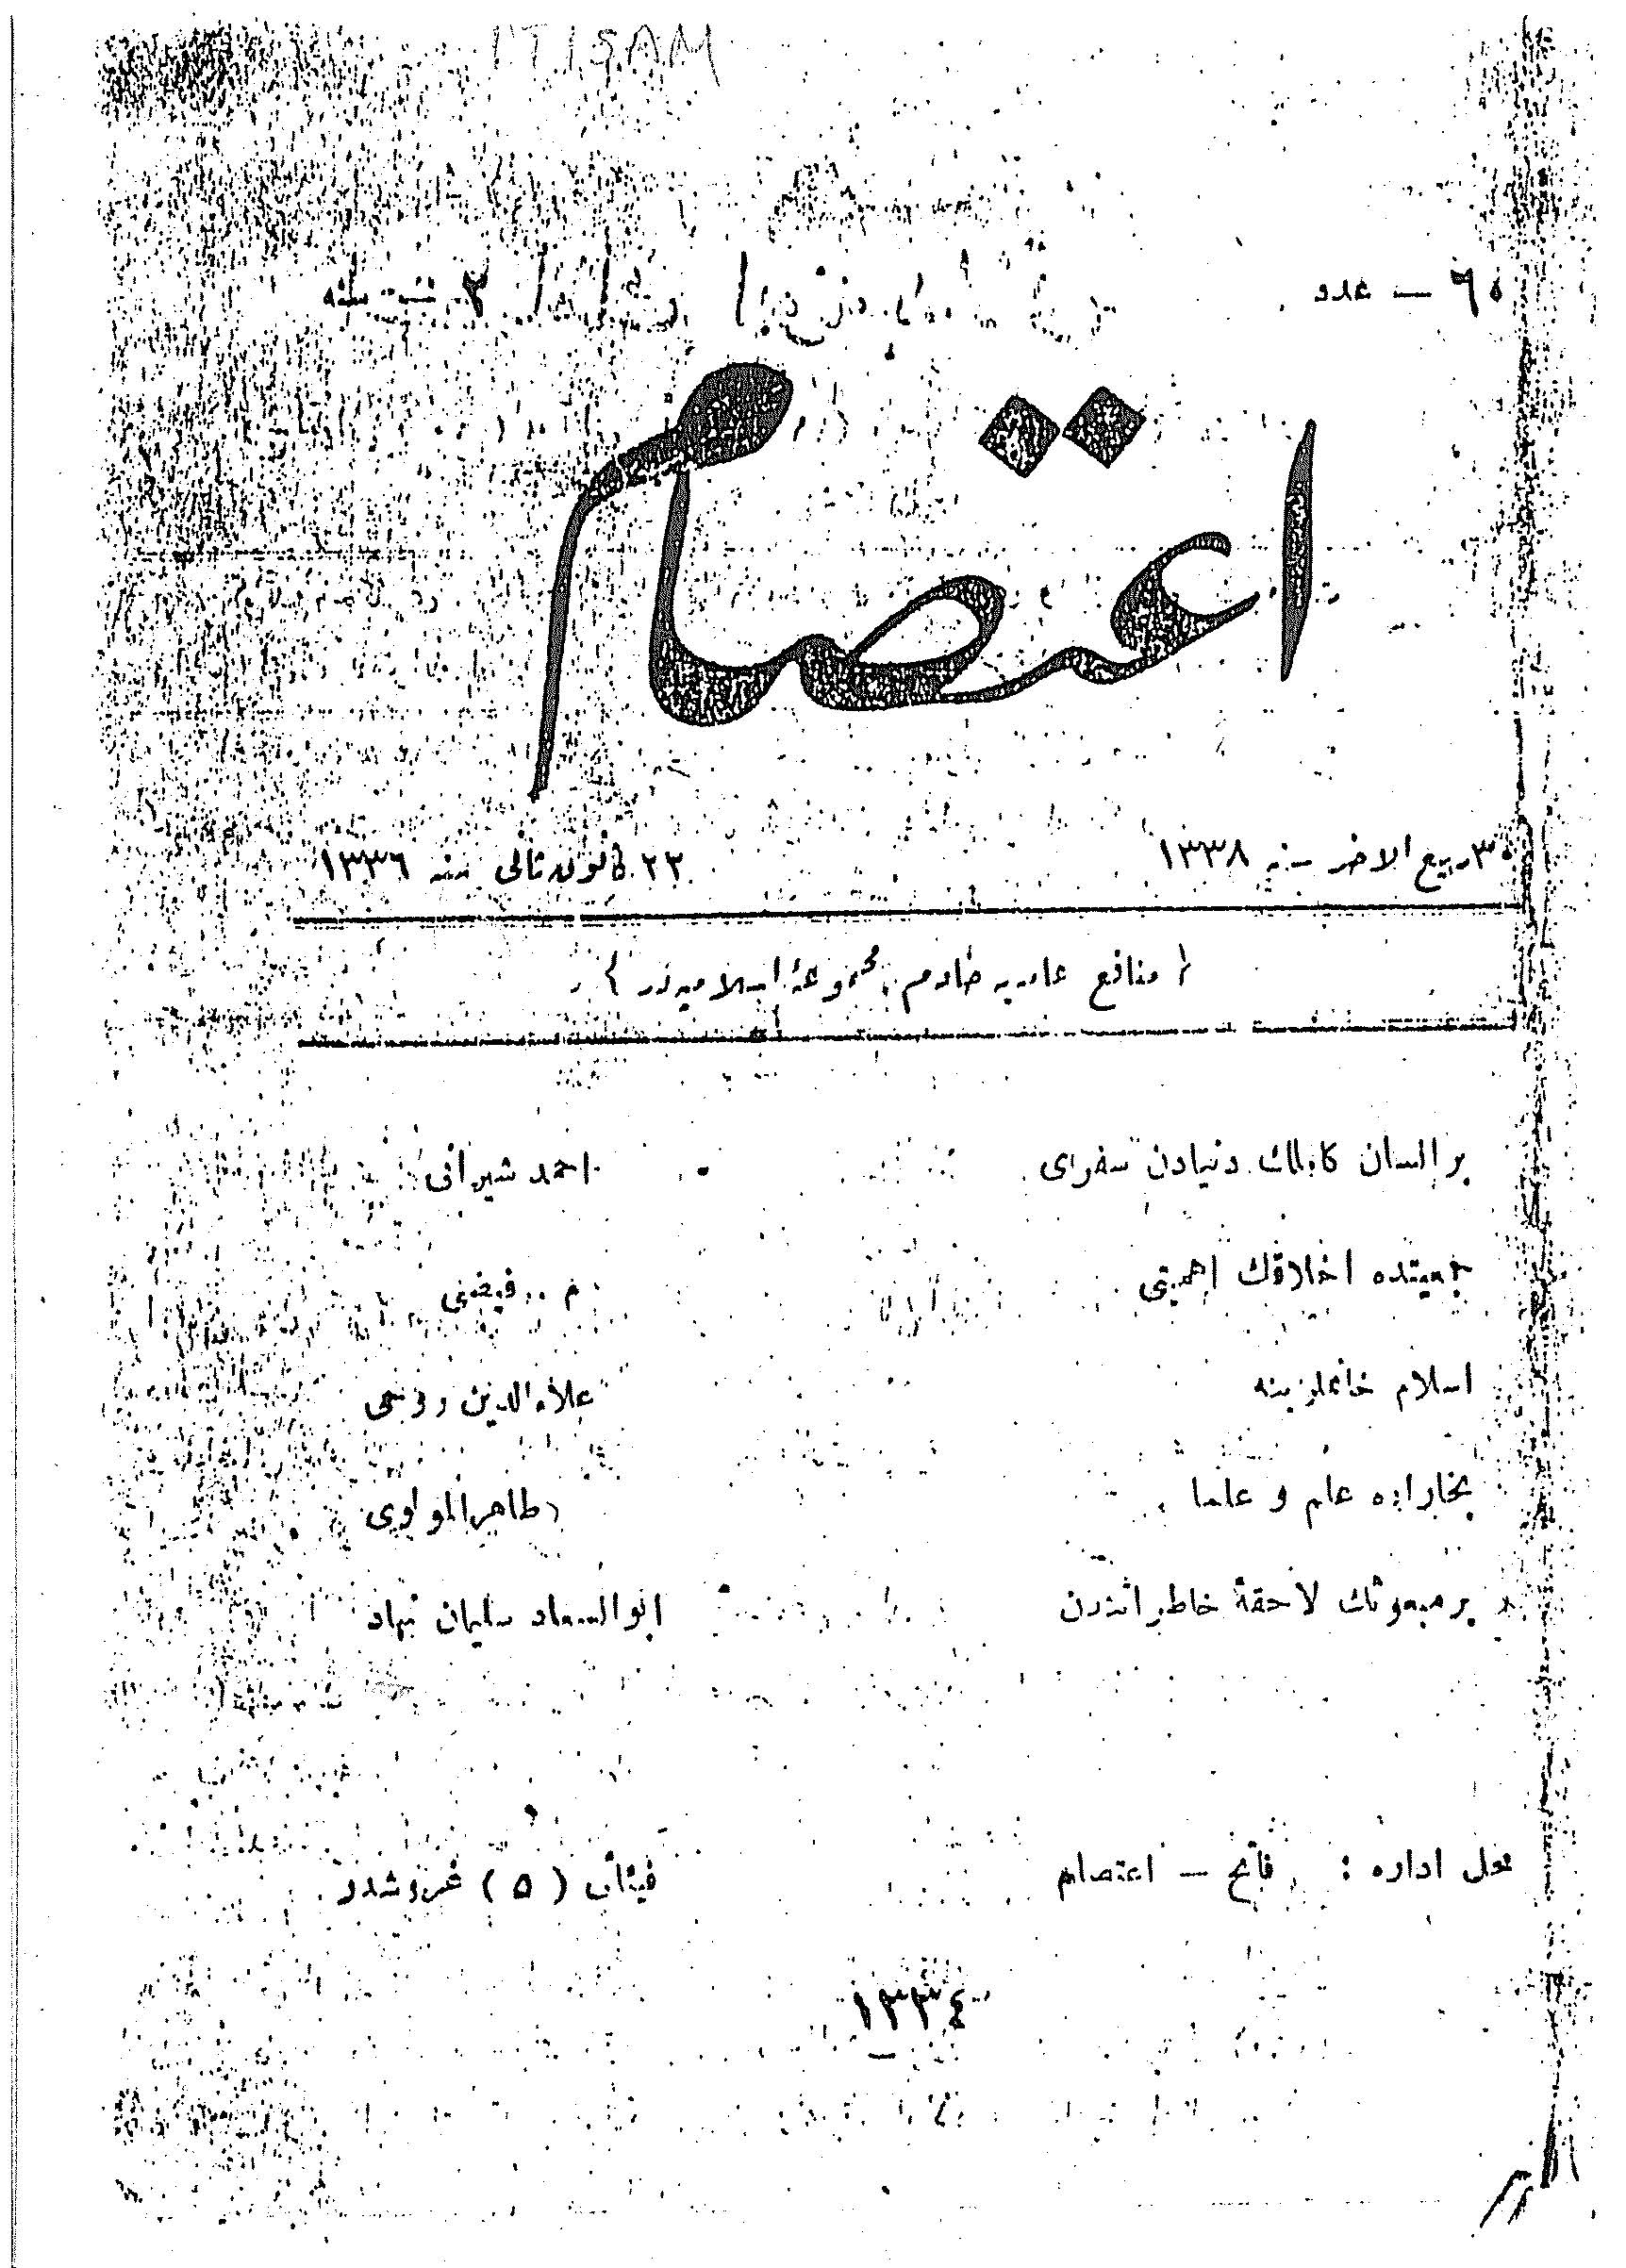 I'TISAM
٦٥ — عدد
اعتصام
٣٠ ربيع الاخر سنه ١٣٣٨
٢٢ كانون ثانى سنه ١٣٣٦
{ منافع عامه‌يه خادم مجموعهٔ اسلاميه‌در }
بر انسان كاملك دنيادن سفرى
احمد شيرانى
جمعيتده اخلاقك اهميتى
م . فيضى
اسلام خانملرينه
علاء الدين روحى
بخاراده علم و علما
طاهر المولوى
بر مبعوثك لاحقهٔ خاطراتندن
ابو السعاد سليمان نهاد
محل اداره : فاتح — اعتصام
فيئاتى ( ٥ ) غروشدر
١٣٣٤